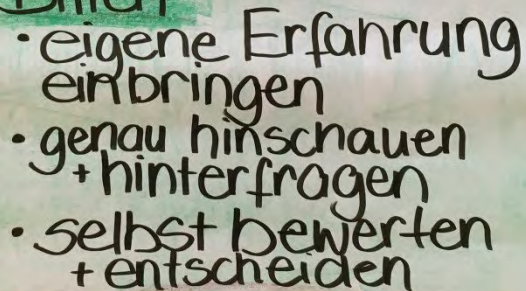 • eigene Erfahrung
einbringen
• genau hinschauen
+ hinterfragen
• selbst bewerten
+ entscheiden